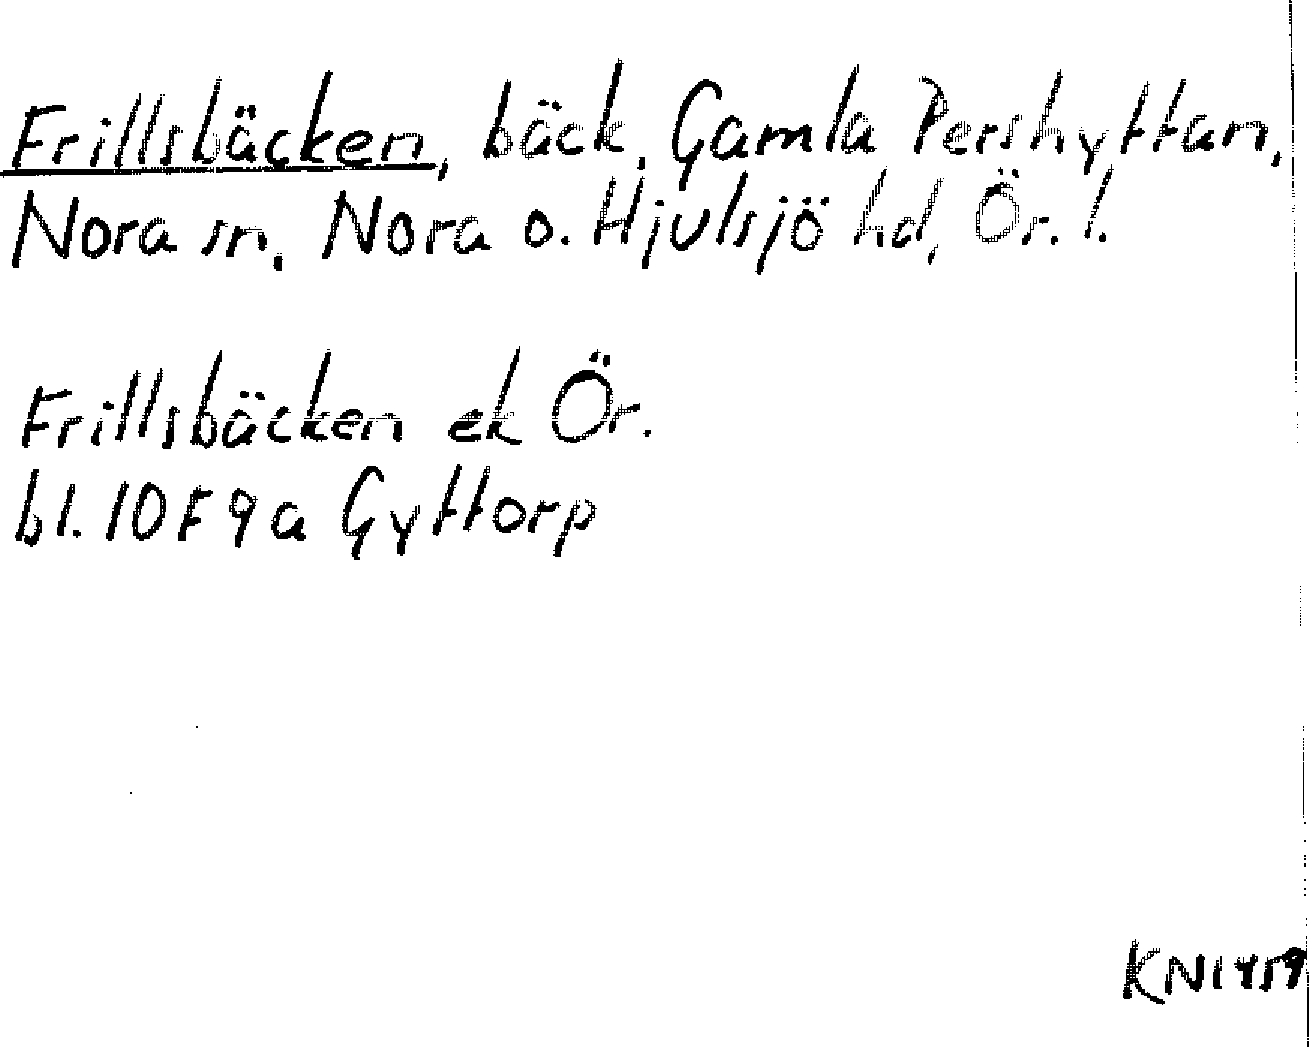 Frillsbäcken, bäck, Gamla Pershyttan,
Nora sn, Nora o. Hjulsjö hd, Ör. l.
Frillsbäcken ek Ör.
bl. 10F9a Gyttorp